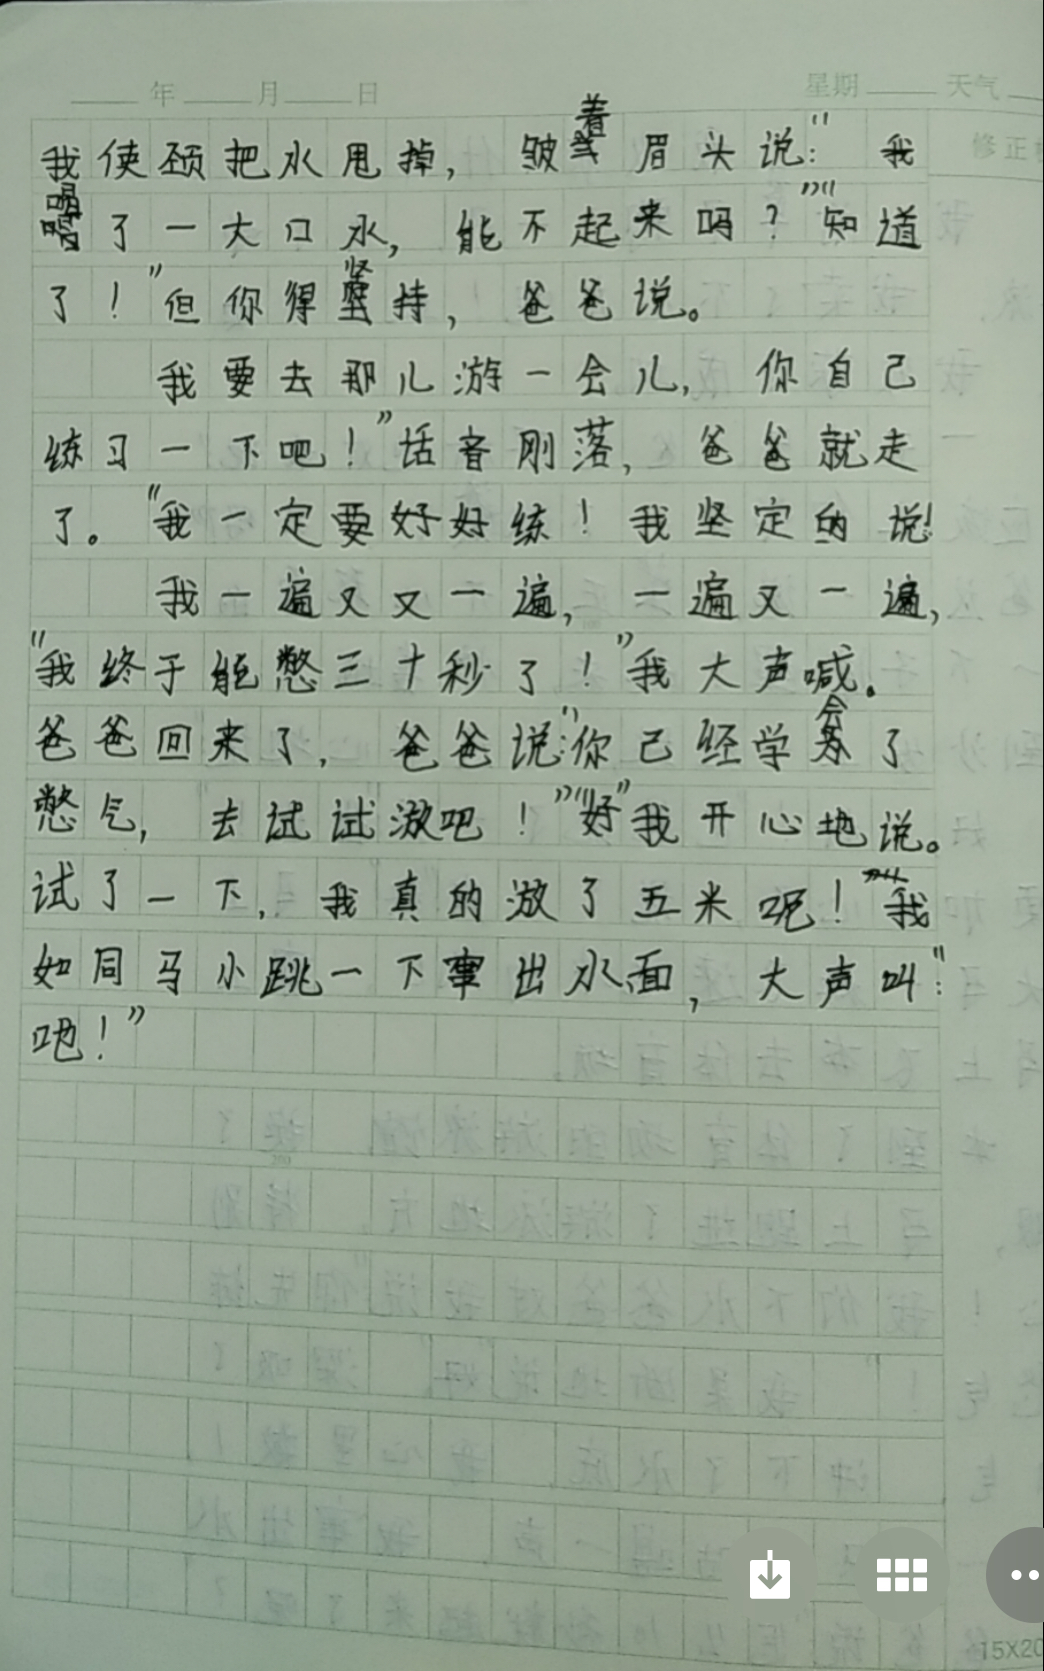 年 月 日 星期 天气
修正
我使颈把水甩掉，皱着眉头说：“我
喝了一大口水，能不起来吗？”“知道
了！”但你得坚持，爸爸说。
我要去那儿游一会儿，你自己
练习一下吧！”话音刚落，爸爸就走
了。“我一定要好好练！我坚定的说！
我一遍又又一遍，一遍又一遍，
“我终于能憋三十秒了！”我大声喊。
爸爸回来了，爸爸说：“你已经学会了
憋气，去试试游吧！”“好”我开心地说。
试了一下，我真的游了五米呢！我
如同马小跳一下窜出水面，大声叫：“
吧！”
15X20